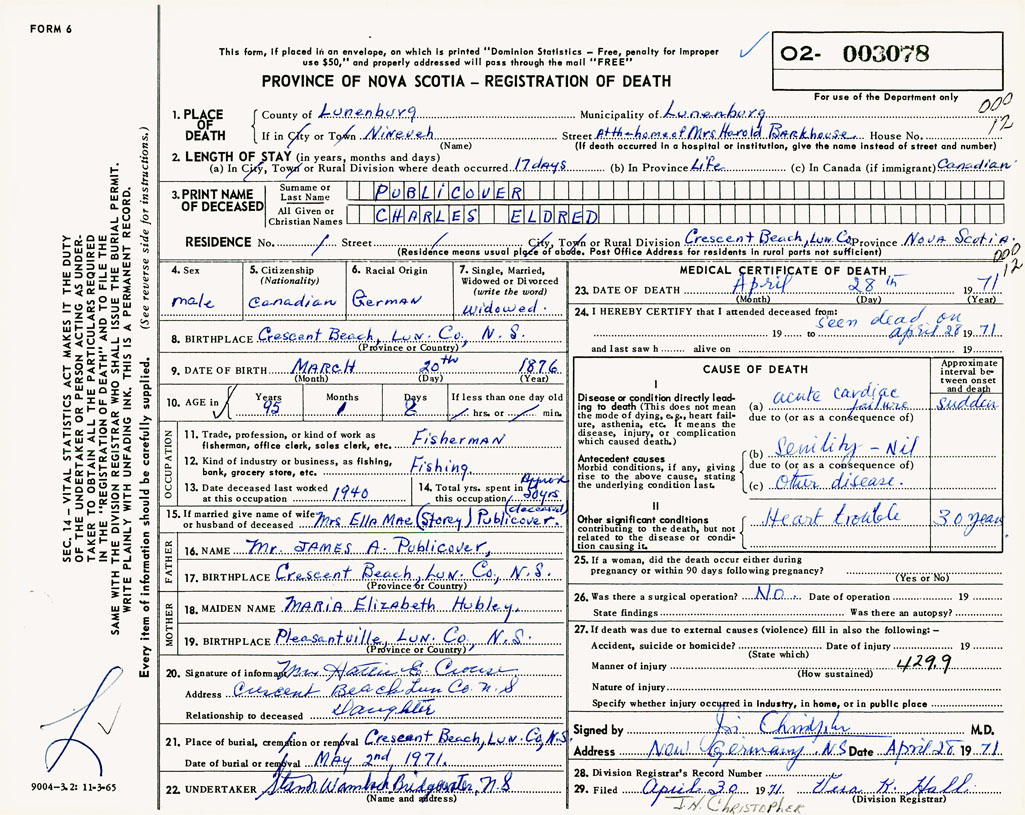 FORM 6
This form, if placed in an envelope, on which is printed "Dominion Statistics – Free, penalty for improper
use $50," and properly addressed will pass through the mail "FREE"
O2- 003078
PROVINCE OF NOVA SCOTIA – REGISTRATION OF DEATH
For use of the Department only
000
12
1. PLACE OF DEATH County of Lunenburg Municipality of Lunenburg
If in City or Town Nineveh Street At the home of Mrs Harold Barkhouse House No.
(Name) (If death occurred in a hospital or institution, give the name instead of street and number)
2. LENGTH OF STAY (in years, months and days)
(a) In City, Town or Rural Division where death occurred 17 days (b) In Province Life (c) In Canada (if immigrant) Canadian
3. PRINT NAME OF DECEASED Surname or Last Name PUBLICOVER
All Given or Christian Names CHARLES ELDRED
RESIDENCE No. / Street City, Town or Rural Division Crescent Beach, Lun. Co. Province Nova Scotia.
(Residence means usual place of abode. Post Office Address for residents in rural parts not sufficient)
000
12
4. Sex male
5. Citizenship (Nationality) Canadian
6. Racial Origin German
7. Single, Married, Widowed or Divorced (write the word) widowed.
8. BIRTHPLACE Crescent Beach, Lun. Co, N.S.
(Province or Country)
9. DATE OF BIRTH MARCH 20th 1876
(Month) (Day) (Year)
10. AGE in Years 95 Months 1 Days 8 If less than one day old hrs. or min.
OCCUPATION
11. Trade, profession, or kind of work as fisherman, office clerk, sales clerk, etc. Fisherman
12. Kind of industry or business, as fishing, bank, grocery store, etc. Fishing
13. Date deceased last worked at this occupation 1940
14. Total yrs. spent in this occupation Approx 50yrs
15. If married give name of wife or husband of deceased Mrs Ella Mae (Storey) Publicover. (deceased)
FATHER
16. NAME Mr. JAMES A. Publicover,
17. BIRTHPLACE Crescent Beach, Lun. Co, N.S.
(Province or Country)
MOTHER
18. MAIDEN NAME MARIA Elizabeth Hubley.
19. BIRTHPLACE Pleasantville, Lun. Co, N.S.
(Province or Country)
20. Signature of informant Mrs Hattie E. Crouse
Address Crescent Beach Lun Co. N.S
Relationship to deceased Daughter
21. Place of burial, cremation or removal Crescent Beach, Lun. Co, N.S.
Date of burial or removal MAY 2nd, 1971.
22. UNDERTAKER Bridgewater, N.S
(Name and address)
MEDICAL CERTIFICATE OF DEATH
23. DATE OF DEATH April 28th 1971
(Month) (Day) (Year)
24. I HEREBY CERTIFY that I attended deceased from:
seen dead on
19 to April 28 1971.
and last saw h alive on 19
CAUSE OF DEATH
Approximate interval between onset and death
I
Disease or condition directly leading to death (This does not mean the mode of dying, e.g., heart failure, asthenia, etc. It means the disease, injury, or complication which caused death.)
(a) acute cardiac failure sudden
due to (or as a consequence of)
Antecedent causes
Morbid conditions, if any, giving rise to the above cause, stating the underlying condition last.
(b) Senility – Nil
due to (or as a consequence of)
(c) Other disease.
II
Other significant conditions
contributing to the death, but not related to the disease or condition causing it.
Heart trouble 30 years
25. If a woman, did the death occur either during
pregnancy or within 90 days following pregnancy?
(Yes or No)
26. Was there a surgical operation? No. Date of operation 19
State findings Was there an autopsy?
27. If death was due to external causes (violence) fill in also the following: –
Accident, suicide or homicide? Date of injury 19
(State which)
Manner of injury 429.9
(How sustained)
Nature of injury
Specify whether injury occurred in industry, in home, or in public place
Signed by M.D.
Address New Germany. NS Date April 28 1971
28. Division Registrar's Record Number
29. Filed April 30 1971. Vera K. Hall
(Division Registrar)
J.N. CHRISTOPHER
SEC. 14 – VITAL STATISTICS ACT MAKES IT THE DUTY
OF THE UNDERTAKER OR PERSON ACTING AS UNDER-
TAKER TO OBTAIN ALL THE PARTICULARS REQUIRED
IN THE "REGISTRATION OF DEATH" AND TO FILE THE
SAME WITH THE DIVISION REGISTRAR WHO SHALL ISSUE THE BURIAL PERMIT.
WRITE PLAINLY WITH UNFADING INK. THIS IS A PERMANENT RECORD.
Every item of information should be carefully supplied. (See reverse side for instructions.)
9004-3.2: 11-3-65